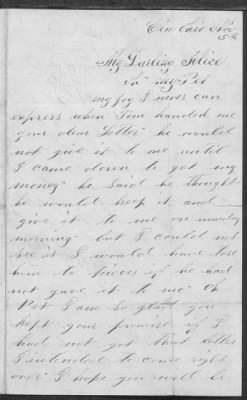 Cin Ohio Nov
5th
My Darling Alice
my Pet
my joy I never can
express when Tom handed me
your dear Letter he would
not give it to me until
I came down to get my
money he said he thought
he would keep it and
give it to me on monday
morning but I could not
see it I would have tore
him to pieces if he had
not gave it to me Oh
Pet I am so glad you
kept your promise if I
had not got that letter
I intended to come right
over I hope you will be